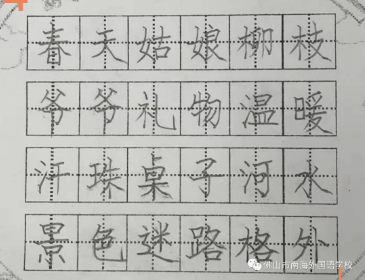 春天姑娘柳枝
爷爷礼物温暖
汗珠桌子河水
景色迷路格外
佛山市南海外国语学校